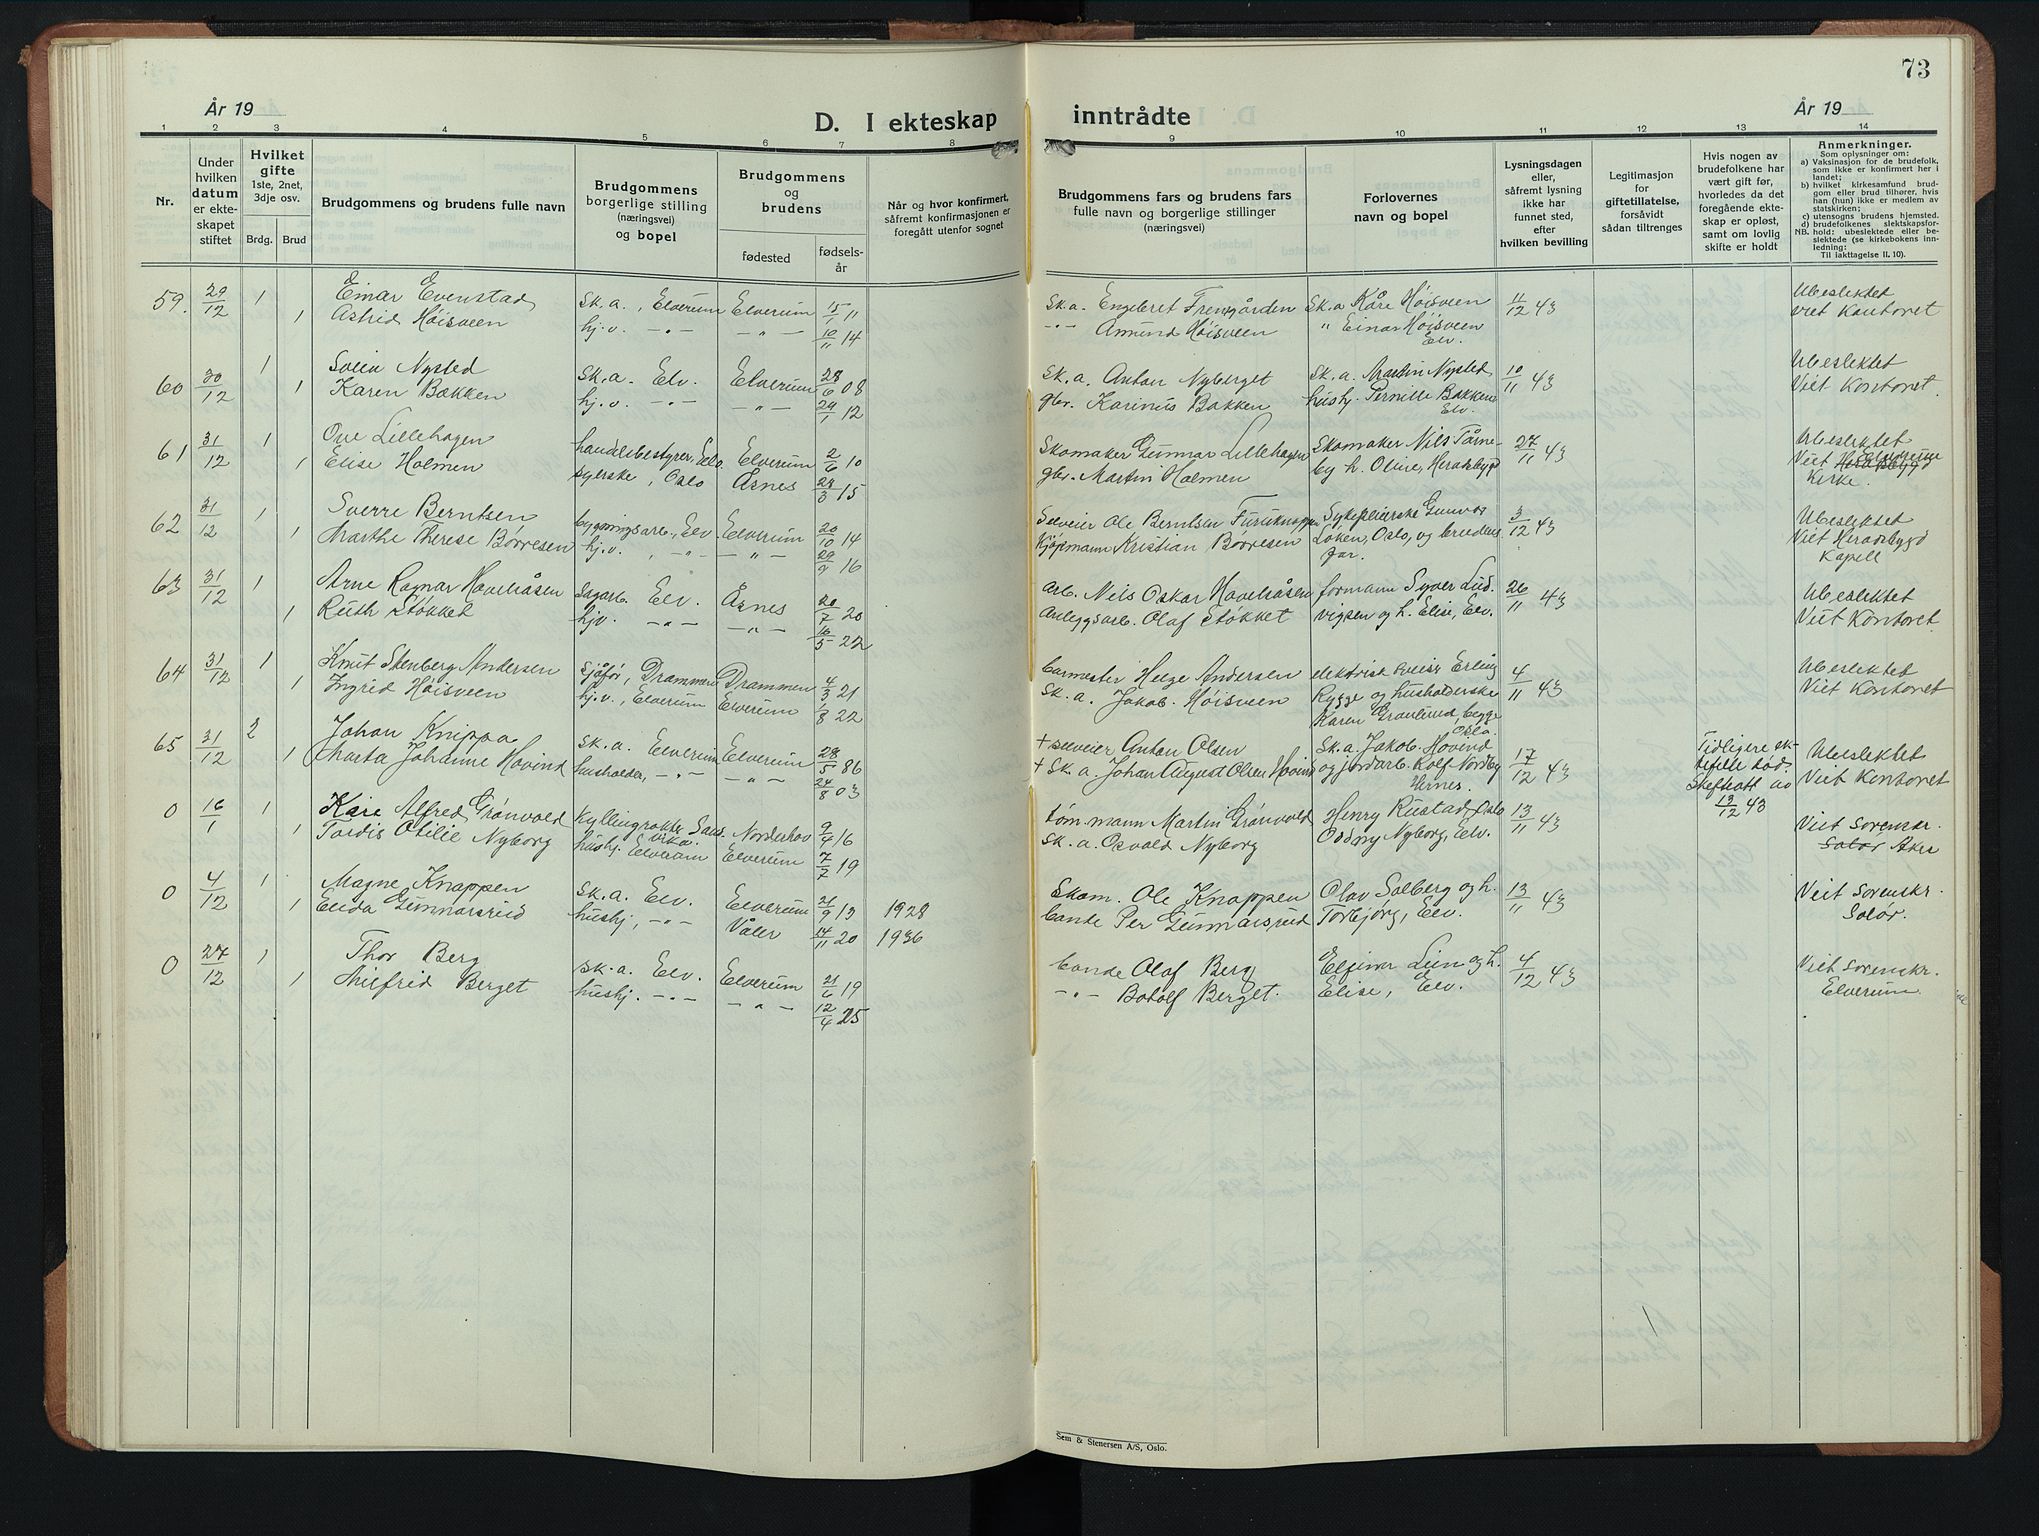 73
År 19
D. I ekteskap inntrådte
År 19
1 2 3 4 5 6 7 8 9 10 11 12 13 14
Nr.
Under hvilken datum er ekteskapet stiftet
Hvilket gifte 1ste, 2net, 3dje osv.
Brdg. Brud
Brudgommens og brudens fulle navn
Brudgommens borgerlige stilling (næringsvei) og bopel
Brudgommens og brudens
fødested
fødselsår
Når og hvor konfirmert, såfremt konfirmasjonen er foregått utenfor sognet
Brudgommens fars og brudens fars fulle navn og borgerlige stillinger (næringsvei)
Forlovernes navn og bopel
Lysningsdagen eller, såfremt lysning ikke har funnet sted, efter hvilken bevilling
Legitimasjon for giftetillatelse, forsåvidt sådan tiltrenges
Hvis nogen av brudefolkene har vært gift før, hvorledes da det foregående ekteskap er opløst, samt om lovlig skifte er holdt
Anmerkninger.
Som oplysninger om:
a) Vaksinasjon for de brudefolk, som ikke er konfirmert her i landet;
b) hvilket kirkesamfund brudgom eller brud tilhører, hvis han (hun) ikke er medlem av statskirken;
c) utensogns brudens hjemsted.
d) brudefolkenes slektskapsforhold: ubeslektede eller beslektede (se kirkebokens innledning:
NB.
Til iakttagelse II. 10).
59. 29/12 1 Einar Evenstad sk.a., Elverum Elverum 15/1 11 sk.a. Engebret Fremgården Sk.a Kåre Høisveen 11/12 43 Ubeslektet
1 Astrid Høisveen hj.v. -"- -"- 10/11 14 -"- Amund Høisveen " Einar Høisveen Elv. Viet Kontoret
60 30/12 1 Svein Nysted sk.a. Elv. Elverum 28/6 08 sk.a. Anton Nyberget sk.a. Martin Nysted, 10/11 43 Ubeslektet
1 Karen Bakken hj.v. -"- -"- 29/1 12 gbr. Karinus Bakken hushj. Pernille Bakken Elv. Viet Kontoret
61 31/12 1 Ove Lillehagen handelsbestyrer, Elv. Elverum 2/6 10 Skomaker Gunnar Lillehagen Skomaker Nils Tårne- 27/11 43 Ubeslektet
1 Elise Holmen syerske, Oslo Åsnes 28/3 15 gbr. Martin Holmen by h. Oline, Heradsbygd Viet Heradsbygd Elverum kirke.
62 31/12 1 Sverre Berntsen bygningsarb., Elv Elverum 20/10 14 Selveier Ole Berntsen Furuknappen Sykepleierske Gunvor 3/12 43 Ubeslektet
1 Marthe Therese Børresen hj.v. -"- -"- 29/9 16 Kjøpmann Kristian Børresen Løken, Oslo, og brudens far. Viet Heradsbygd Kapell
63 31/12 1 Arne Ragnar Havelsåsen Sagarb. Elv. Åsnes 20/7 20 arb. Nils Oskar Havelsåsen formann Syver Lud- 26/11 43 Ubeslektet
1 Ruth Støkket hjv. -"- -"- 16/5 22 Anleggsarb. Olaf Støkket vigsen og h. Elise, Elv. Viet Kontoret.
64 31/12 1 Knut Stenberg Andersen Sjåfør, Drammen Drammen 4/3 21 Helge Andersen elektrisk Erling 4/11 43 Ubeslektet
1 Ingrid Høisveen hj.v., Elverum Elverum 1/8 22 sk.a. Jakob Høisveen Rygge og husholderske Karen Grønlund, begge Oslo. Viet Kontoret
65 31/12 2 Johan Knippa sk.a. Elverum Elverum 28/5 86 + selveier Anton Olsen Sk.a Jakob Hovind 17/12 43 Tidligere ek- Ubeslektet
1 Marta Johanne Hovind husholder, -"- -"- 24/8 03 + sk.a. Johan August Olsen Hovind og jordarb. Rolf Nordby Hernes. tefelle død. Skifteatt av 13/12 43 Viet Kontoret
0 16/1 1 Kåre Alfred Grønvold Kyllingrøkter Norderhov 9/4 16 tøm.mann Martin Grønvold Henry Rustad, Oslo 13/11 43 Viet Sorenskr.
1 Tordis Otilie Nyborg hushj. Elverum Elverum 7/7 19 sk.a. Osvald Nyborg Oddny Nyborg, Elv. Solør Aker
0 4/12 1 Magne Knappen sk.a. Elv. Elverum 21/9 13 1928 Skom. Ole Knappen Olav Solberg og h. 13/11 43 Viet Sorenskr.
1 Elida Gunnarsrud hushj, -"- Våler 14/11 20 1936 bonde Per Gunnarsrud Torbjørg, Elv. Solør.
0 27/12 1 Thor Berg sk.a. Elv. Elverum 21/6 19 bonde Olaf Berg Lun og h. 4/12 43 Viet Sorenskr.
1 Milfrid Berget hushj. -"- -"- 12/4 25 -"- Botolf Berget. Elise, Elv. Elverum.
Sem & Stenersen A/S, Oslo.